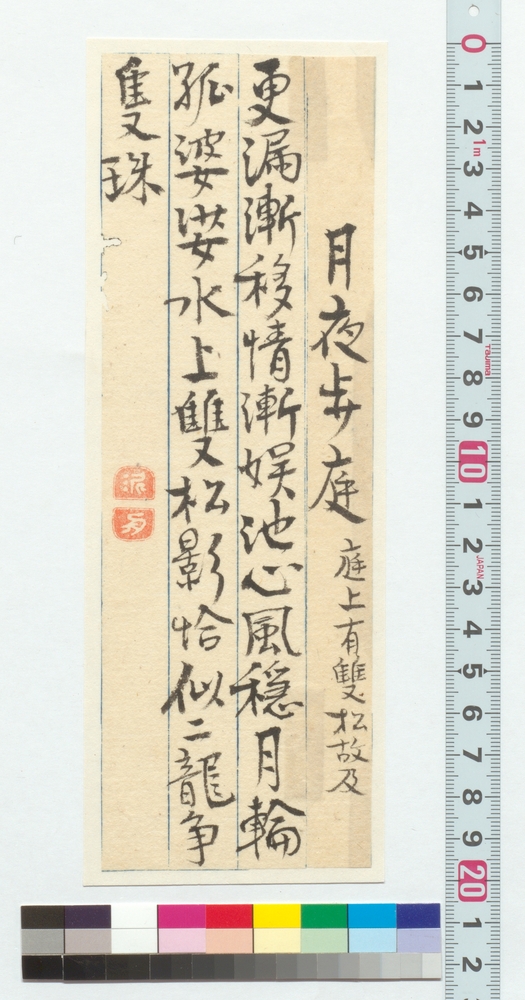 月夜歩庭 庭上有雙松故及
更漏漸移情漸娯池心風穏月輪
孤婆娑水上雙松影恰似二龍争
隻珠
0 1 2 3 4 5 6 7 8 9 10 1 2 3 4 5 6 7 8 9 20 1 2
1m
Tajima
JAPAN